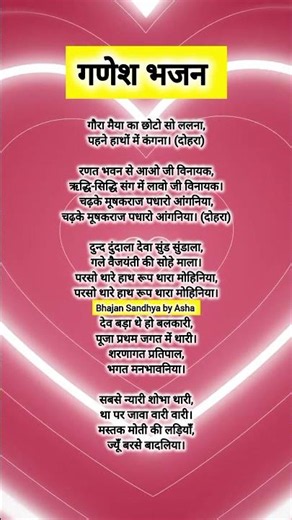 गणेश भजन
गौरा मैया का छोटो सो ललना,
पहने हाथों में कंगना। (दोहरा)
रणत भवन से आओ जी विनायक,
ऋद्धि-सिद्धि संग में लावो जी विनायक।
चढ़के मूषकराज पधारो आंगनिया,
चढ़के मूषकराज पधारो आंगनिया। (दोहरा)
दुन्द दुंदाला देवा सुंड सुंडाला,
गले वैजयंती की सोहे माला।
परसो थारे हाथ रूप थारा मोहिनिया,
परसो थारे हाथ रूप थारा मोहिनिया।
Bhajan Sandhya by Asha
देव बड़ा थे हो बलकारी,
पूजा प्रथम जगत में थारी।
शरणागत प्रतिपाल,
भगत मनभावनिया।
सबसे न्यारी शोभा थारी,
था पर जावा वारी वारी।
मस्तक मोती की लड़ियाँ,
ज्यूँ बरसे बादलिया।